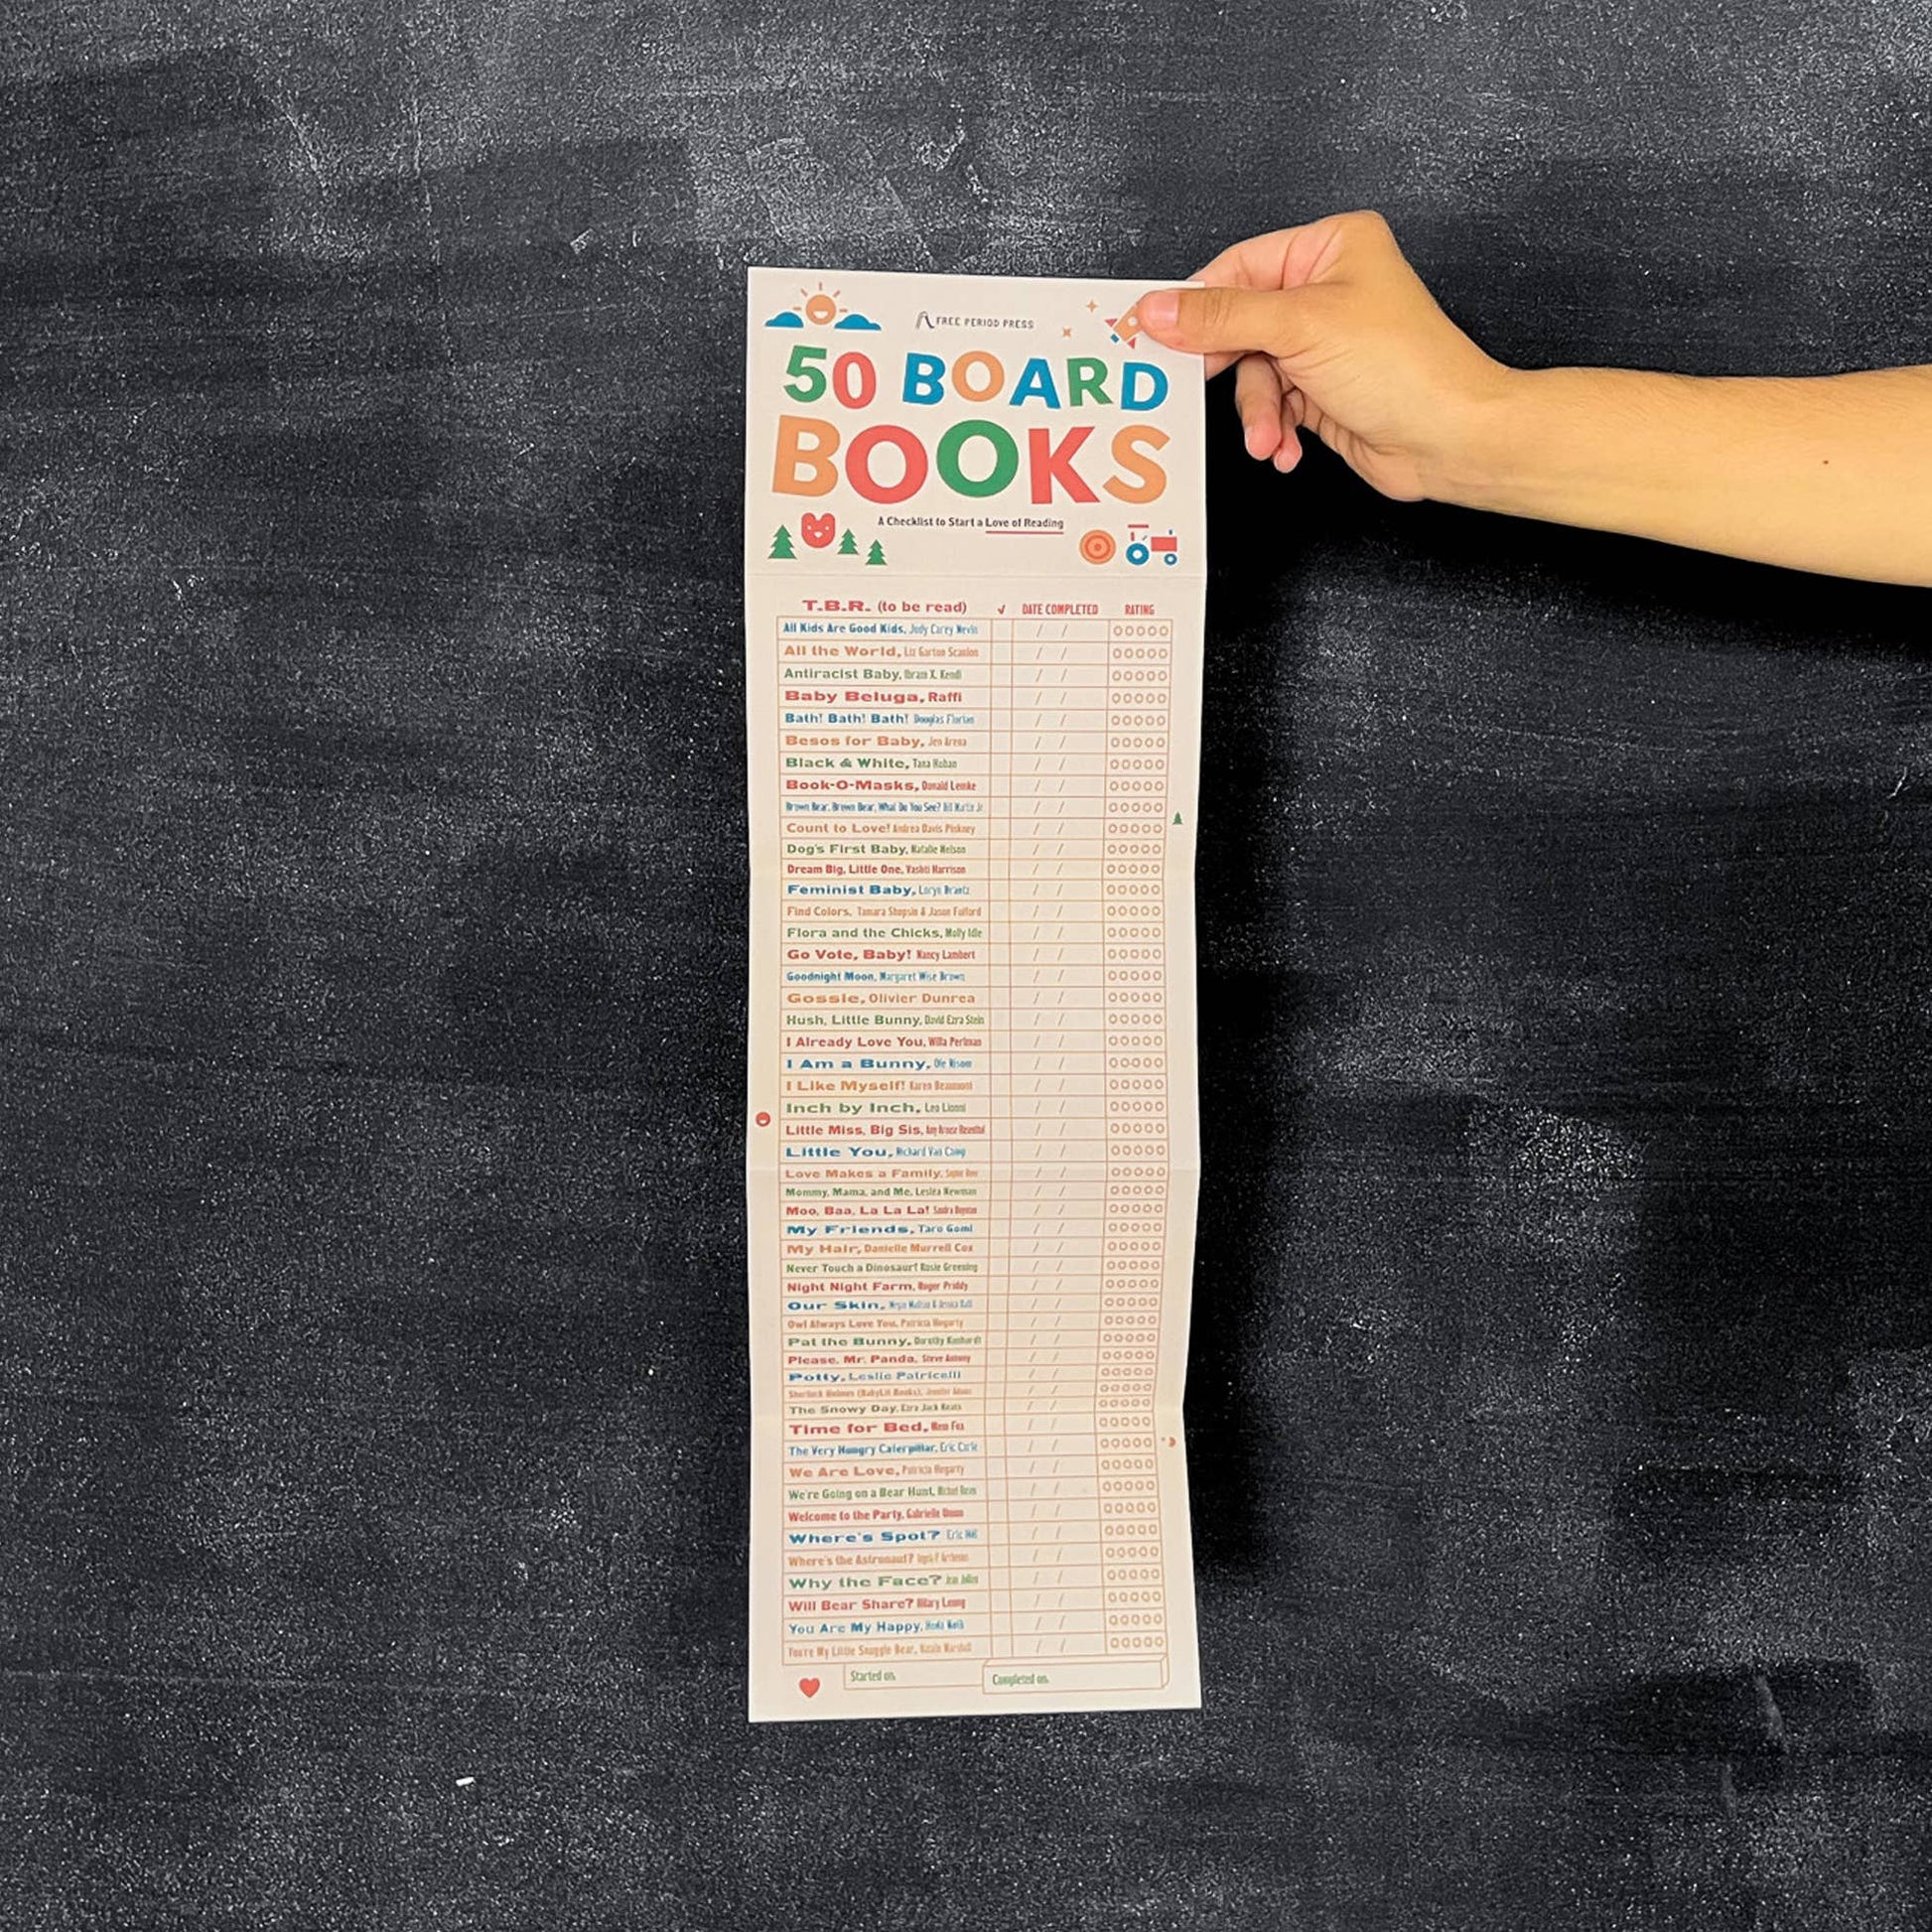 FREE PERIOD PRESS
50 BOARD
BOOKS
A Checklist to Start a Love of Reading
T.B.R. (to be read) √ DATE COMPLETED RATING
All Kids Are Good Kids, Judy Carey Nevin / /
All the World, Liz Garton Scanlon / /
Antiracist Baby, Ibram X. Kendi / /
Baby Beluga, Raffi / /
Bath! Bath! Bath! Douglas Florian / /
Besos for Baby, Jen Arena / /
Black & White, Tana Hoban / /
Book-O-Masks, Donald Lemke / /
Brown Bear, Brown Bear, What Do You See? Bill Martin Jr. / /
Count to Love! Andrea Davis Pinkney / /
Dog's First Baby, Natalie Nelson / /
Dream Big, Little One, Vashti Harrison / /
Feminist Baby, Loryn Brantz / /
Find Colors, Tamara Shopsin & Jason Fulford / /
Flora and the Chicks, Molly Idle / /
Go Vote, Baby! Nancy Lambert / /
Goodnight Moon, Margaret Wise Brown / /
Gossie, Olivier Dunrea / /
Hush, Little Bunny, David Ezra Stein / /
I Already Love You, Willa Perlman / /
I Am a Bunny, Ole Risom / /
I Like Myself! Karen Beaumont / /
Inch by Inch, Leo Lionni / /
Little Miss, Big Sis, Amy Krouse Rosenthal / /
Little You, Richard Van Camp / /
Love Makes a Family, Sophie Beer / /
Mommy, Mama, and Me, Leslea Newman / /
Moo, Baa, La La La! Sandra Boynton / /
My Friends, Taro Gomi / /
My Hair, Danielle Murrell Cox / /
Never Touch a Dinosaur! Rosie Greening / /
Night Night Farm, Roger Priddy / /
Our Skin, Megan Madison & Jessica Ralli / /
Owl Always Love You, Patricia Hegarty / /
Pat the Bunny, Dorothy Kunhardt / /
Please, Mr. Panda, Steve Antony / /
Potty, Leslie Patricelli / /
Sherlock Holmes (BabyLit Books), Jennifer Adams / /
The Snowy Day, Ezra Jack Keats / /
Time for Bed, Mem Fox / /
The Very Hungry Caterpillar, Eric Carle / /
We Are Love, Patricia Hegarty / /
We're Going on a Bear Hunt, Michael Rosen / /
Welcome to the Party, Gabrielle Union / /
Where's Spot? Eric Hill / /
Where's the Astronaut? / /
Why the Face? Jean Jullien / /
Will Bear Share? Hilary Leung / /
You Are My Happy, Hoda Kotb / /
You're My Little Snuggle Bear, Natalie Marshall / /
Started on: Completed on: